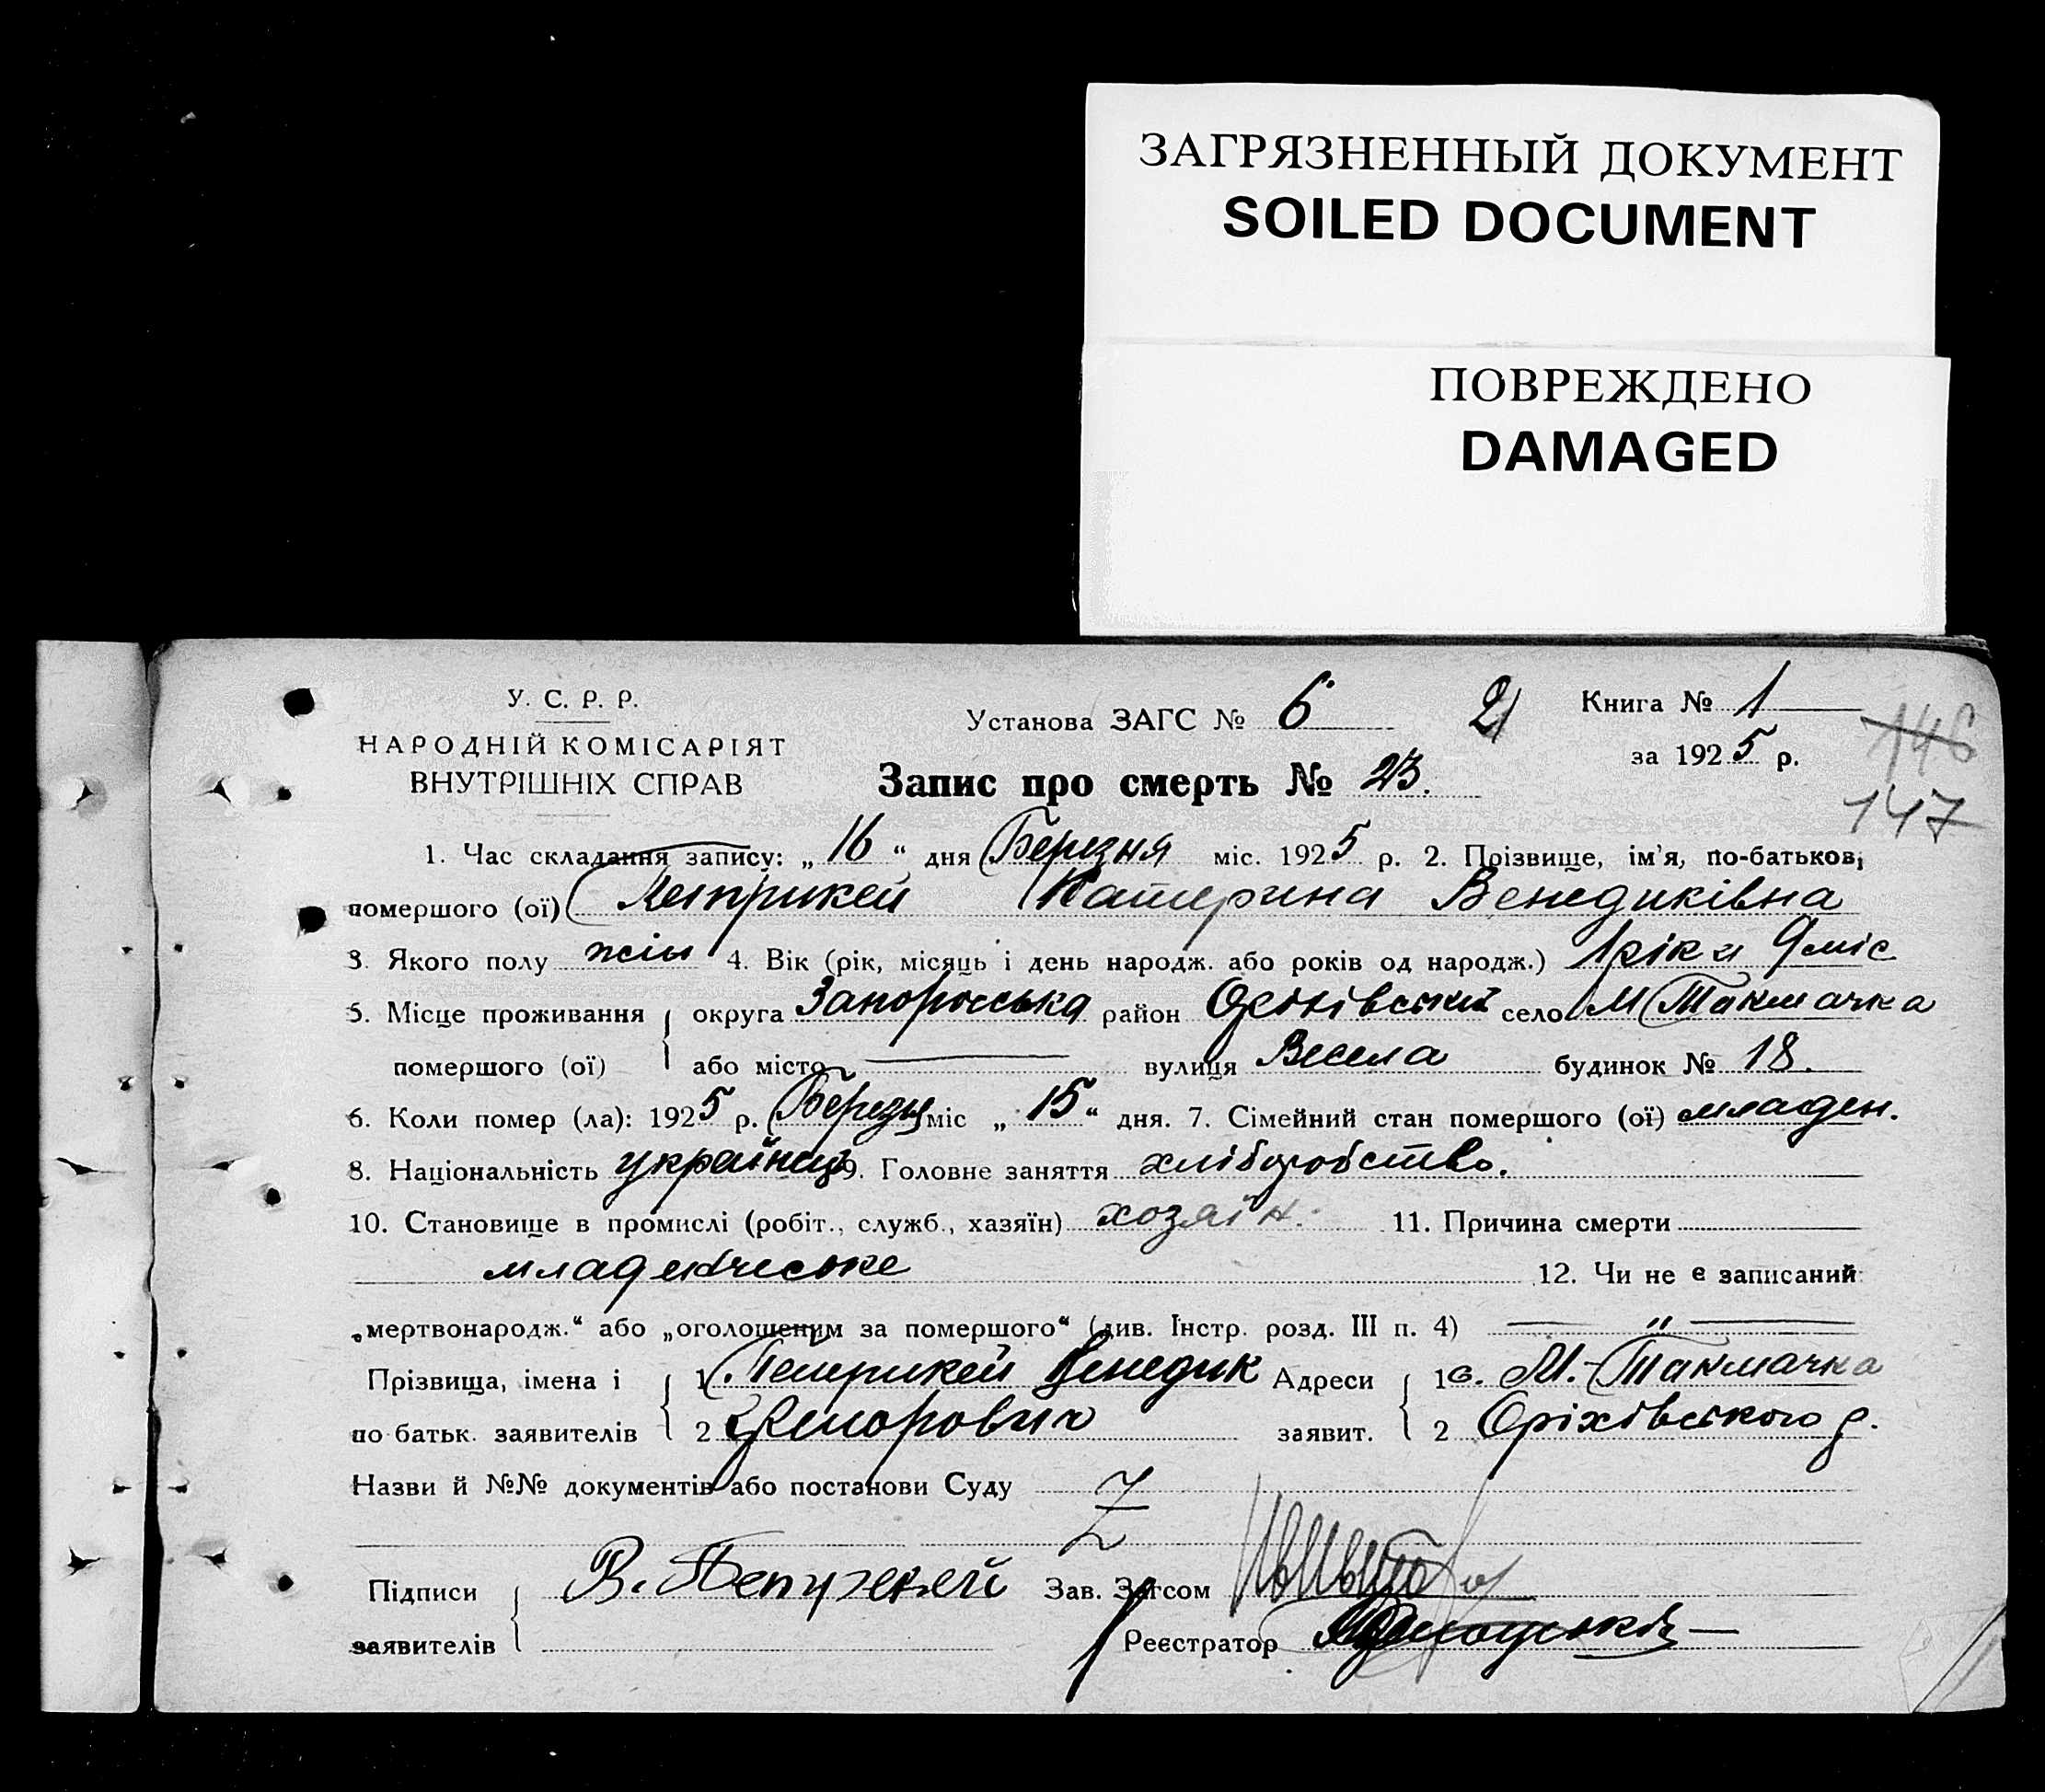 ЗАГРЯЗНЕННЫЙ ДОКУМЕНТ
SOILED DOCUMENT
ПОВРЕЖДЕНО
DAMAGED
У. С. Р. Р.
НАРОДНІЙ КОМІСАРІЯТ
ВНУТРІШНІХ СПРАВ
Установа ЗАГС № 6
21
Книга № 1
за 1925 р.
146
147
Запис про смерть № 23.
1. Час складання запису: „16“ дня Березня міс. 1925 р. 2. Прізвище, ім'я, по-батькові
помершого (ої) Петрикей Катерина Венедиківна
3. Якого полу жін 4. Вік (рік, місяць і день народж. або років од народж.) 1 рік и 9 міс
5. Місце проживання округа Запорожська район село М Такмачка
помершого (ої) або місто вулиця Весела будинок № 18.
6. Коли помер (ла): 1925 р. Березня міс „15“ дня. 7. Сімейний стан помершого (ої) младен.
8. Національність українць 9. Головне заняття хліборобство.
10. Становище в промислі (робіт., служб., хазяїн) хозяїн. 11. Причина смерти
младенческе 12. Чи не є записаний
„мертвонародж.“ або „оголошеним за помершого“ (див. Інстр. розд. III п. 4) — „ —
Прізвища, імена і 1 Петрикей Венедик Адреси 1 с. М.-Такмачка
по батьк. заявителів 2 заявит. 2 Оріхівського р.
Назви й №№ документів або постанови Суду
Підписи В. Петрекей Зав. Загсом
заявителів Реєстратор